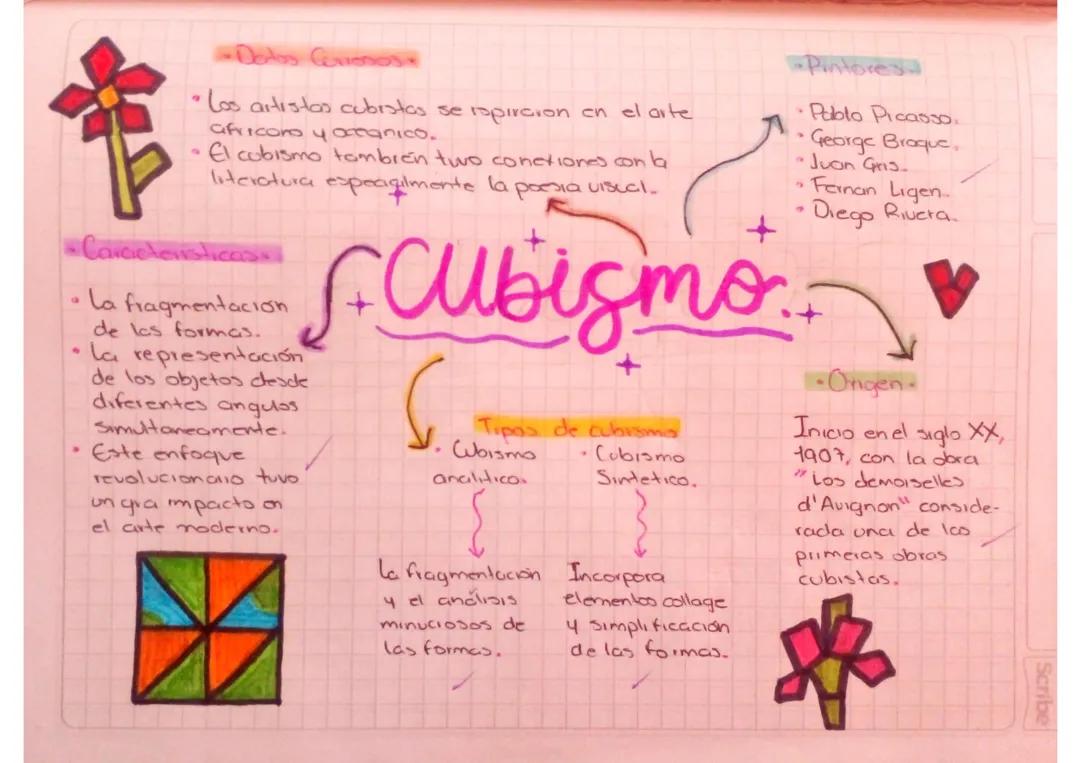 • Datos Curiosos •
• Los artistas cubistas se ispiracion en el arte
africano y oceanico.
• El cubismo también tuvo conexiones con la
literatura especialmente la poesia visual.
• Pintores.
• Pablo Picasso.
• George Braque.
• Juan Gris.
• Fernan Ligen.
• Diego Rivera.
Cubismo.
• Caracteristicas •
• La fragmentacion
de las formas.
• La representación
de los objetos desde
diferentes angulos
simultaneamente.
• Este enfoque
revolucionario tuvo
un gra impacto en
el arte moderno.
Tipos de cubismo
• Cubismo
analitico.
• Cubismo
Sintetico.
La fragmentación
y el análisis
minuciosos de
las formas.
Incorpora
elementos collage
y simplificación
de las formas.
• Origen •
Inicio en el siglo XX,
1907, con la obra
"Los demoiselles
d'Avignon" conside-
rada una de las
primeras obras
cubistas.
Scribe